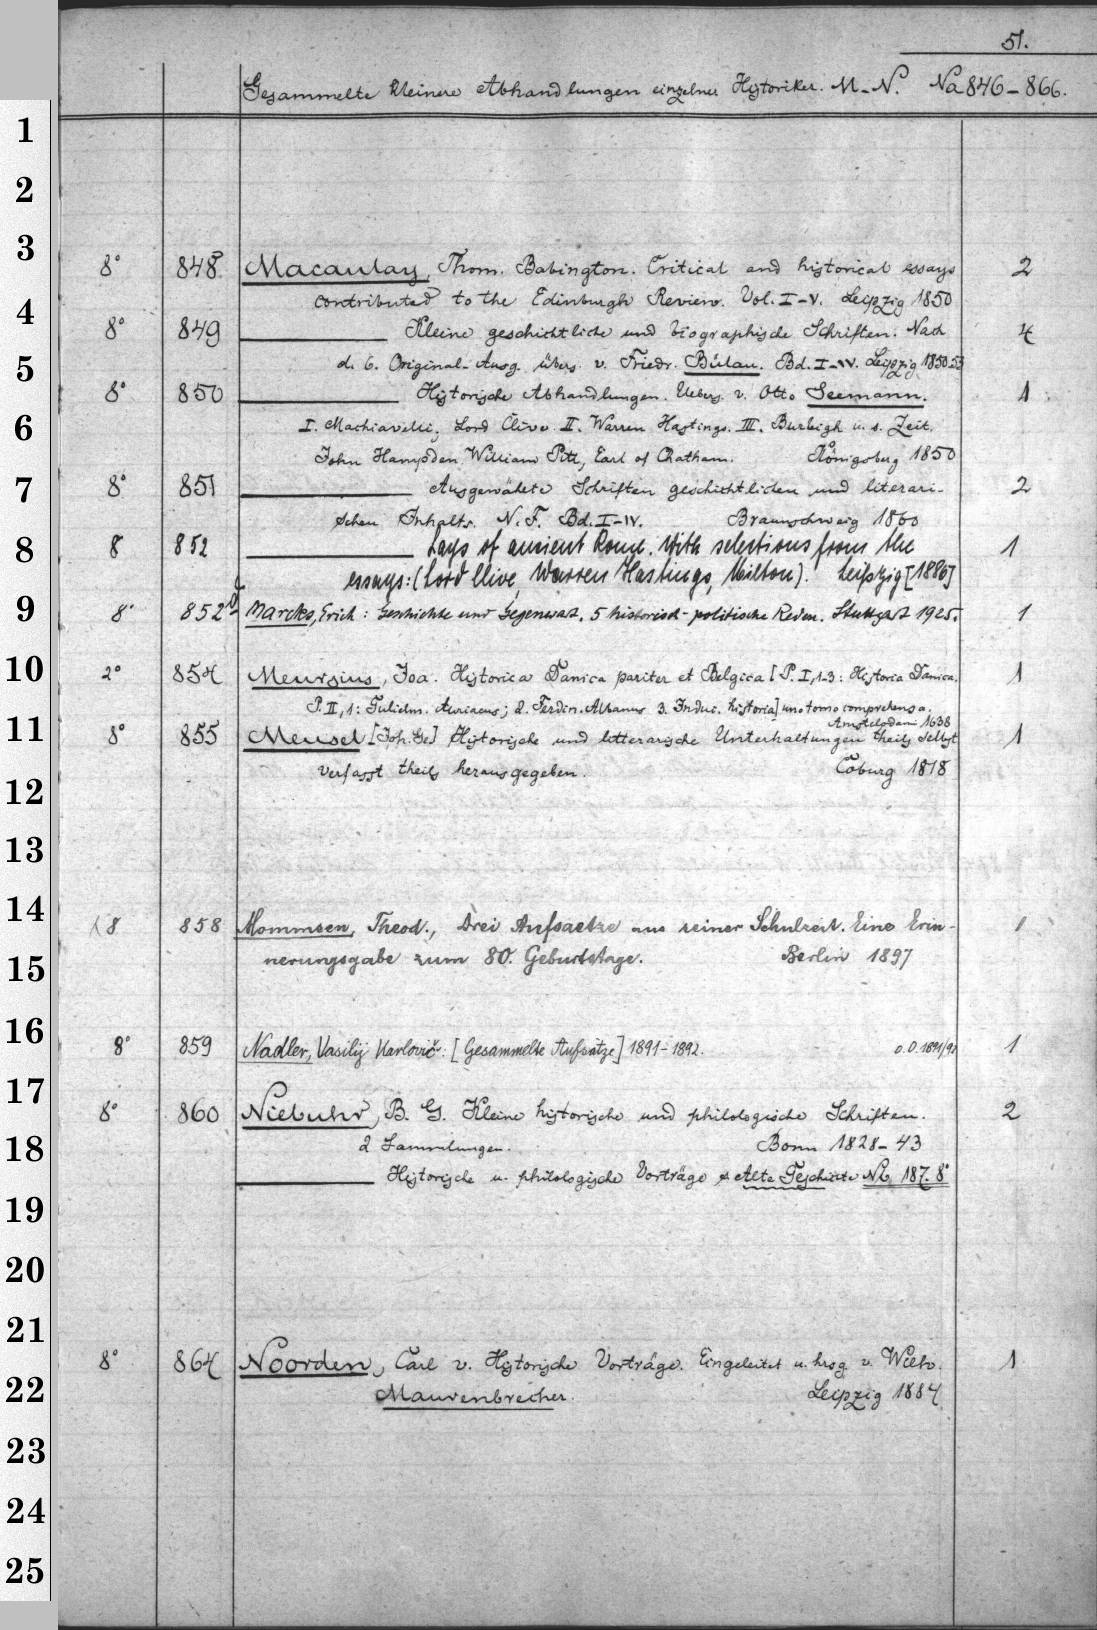 51.
Gesammelte kleinere Abhandlungen einzelner Historiker. M-N. Na 846-866.
1
2
3
8° 848 Macaulay, Thom. Babington. Critical and historical essays 2
contributed to the Edinburgh Review. Vol. I-V. Leipzig 1850
4
8° 849 Kleine geschichtliche und biographische Schriften. Nach 4
d. 6. Original-Ausg. übers. v. Friedr. Bülau. Bd. I-IV. Leipzig 1850-53
5
8° 850 Historische Abhandlungen. Uebers. v. Otto Seemann. 1
6
I. Machiavelli, Lord Clive. II. Warren Hastings. III. Burleigh u. s. Zeit.
John Hampden. William Pitt, Earl of Chatham. Königsberg 1850
7
8° 851 Ausgewählte Schriften geschichtlichen und literari- 2
schen Inhalts. N. F. Bd. I-IV. Braunschweig 1860
8
8 852 Lays of ancient Rome. With selections from the 1
essays: (Lord Clive, Warren Hastings, Milton). Leipzig [1886]
9
8° 852 Marcks, Erich: Geschichte und Gegenwart. 5 historisch-politische Reden. Stuttgart 1925. 1
10
2° 854 Meursius, Joa. Historica Danica pariter et Belgica [P. I, 1-3: Historia Danica. 1
P. II, 1: Gulielm. Auriacus; 2. Ferdin. Albanus 3. Induc. historia] uno tomo comprehensa.
Amstelodami 1638
11
8° 855 Meusel [Joh. Ge] Historische und litterarische Unterhaltungen theils selbst 1
verfasst theils herausgegeben. Coburg 1818
12
13
14
8 858 Mommsen, Theod., Drei Aufsaetze aus seiner Schulzeit. Eine Erin- 1
nerungsgabe zum 80. Geburtstage. Berlin 1897
15
16
8° 859 Nadler, Vasilij Karlovič: [Gesammelte Aufsätze] 1891-1892. o. O. 1891/92 1
17
8° 860 Niebuhr, B. G. Kleine historische und philologische Schriften. 2
18
2 Sammlungen. Bonn 1828-43
Historische u. philologische Vorträge s. Alte Geschichte Nb 187. 8°
19
20
21
8° 864 Noorden, Carl v. Historische Vorträge. Eingeleitet u. hrsg. v. Wilh. 1
22
Maurenbrecher. Leipzig 1884
23
24
25